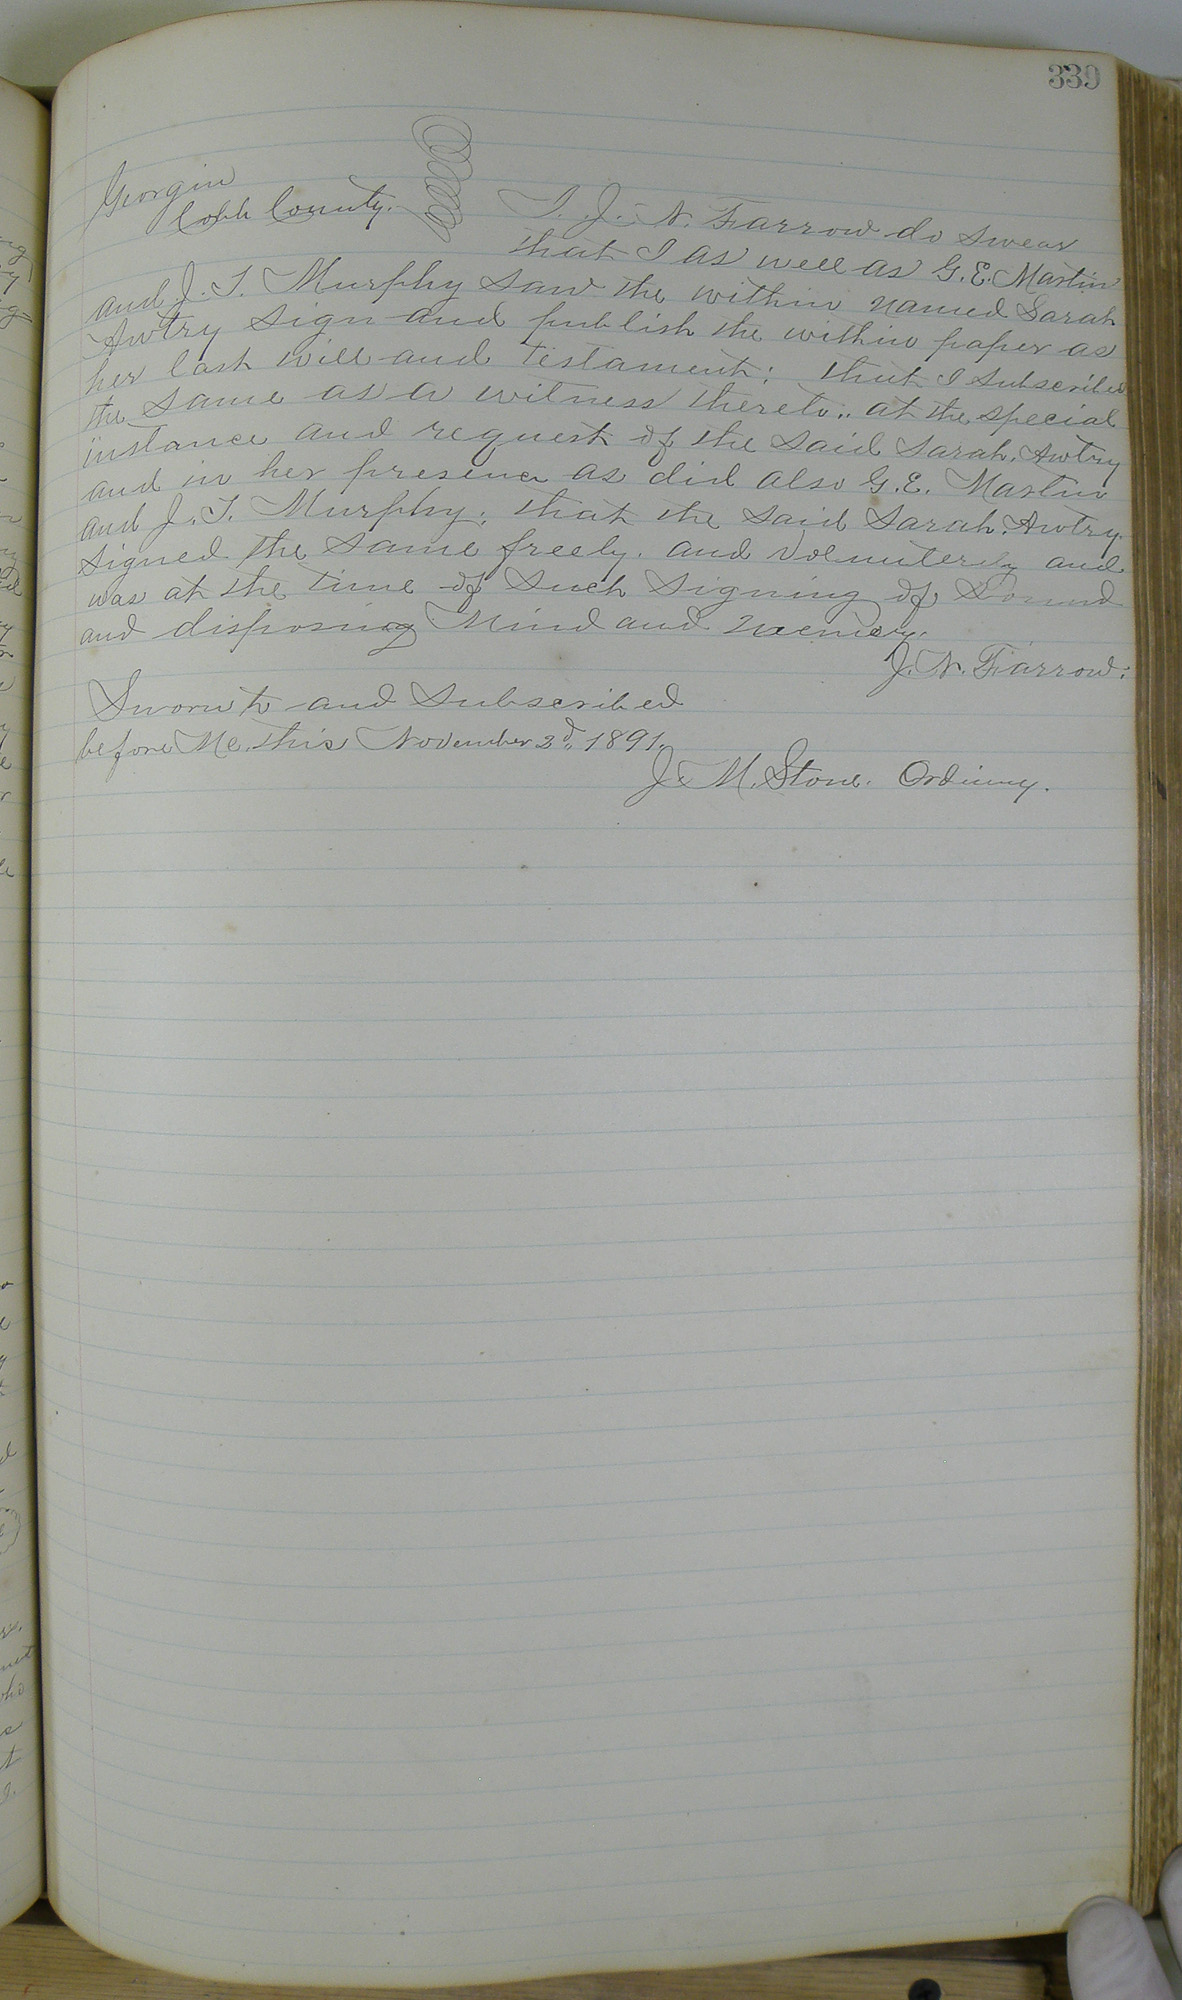 339
Georgia
Cobb County.
I. J. N. Farrow do swear
that I as well as G. E. Martin
and J. T. Murphy saw the within named Sarah
Awtry sign and publish the within paper as
her last will and testament; that I subscribed
the same as a witness thereto, at the special
instance and request of the said Sarah. Awtry
and in her presence as did also G. E. Martin
and J. T. Murphy; that the said Sarah. Awtry.
signed the same freely. and volunterly and
was at the time of such signing of sound
and disposing Mind and memory.
J. N. Farrow.
Sworn to and subscribed
before Me, this November 3d, 1891.
J. M. Stone. Ordinary.